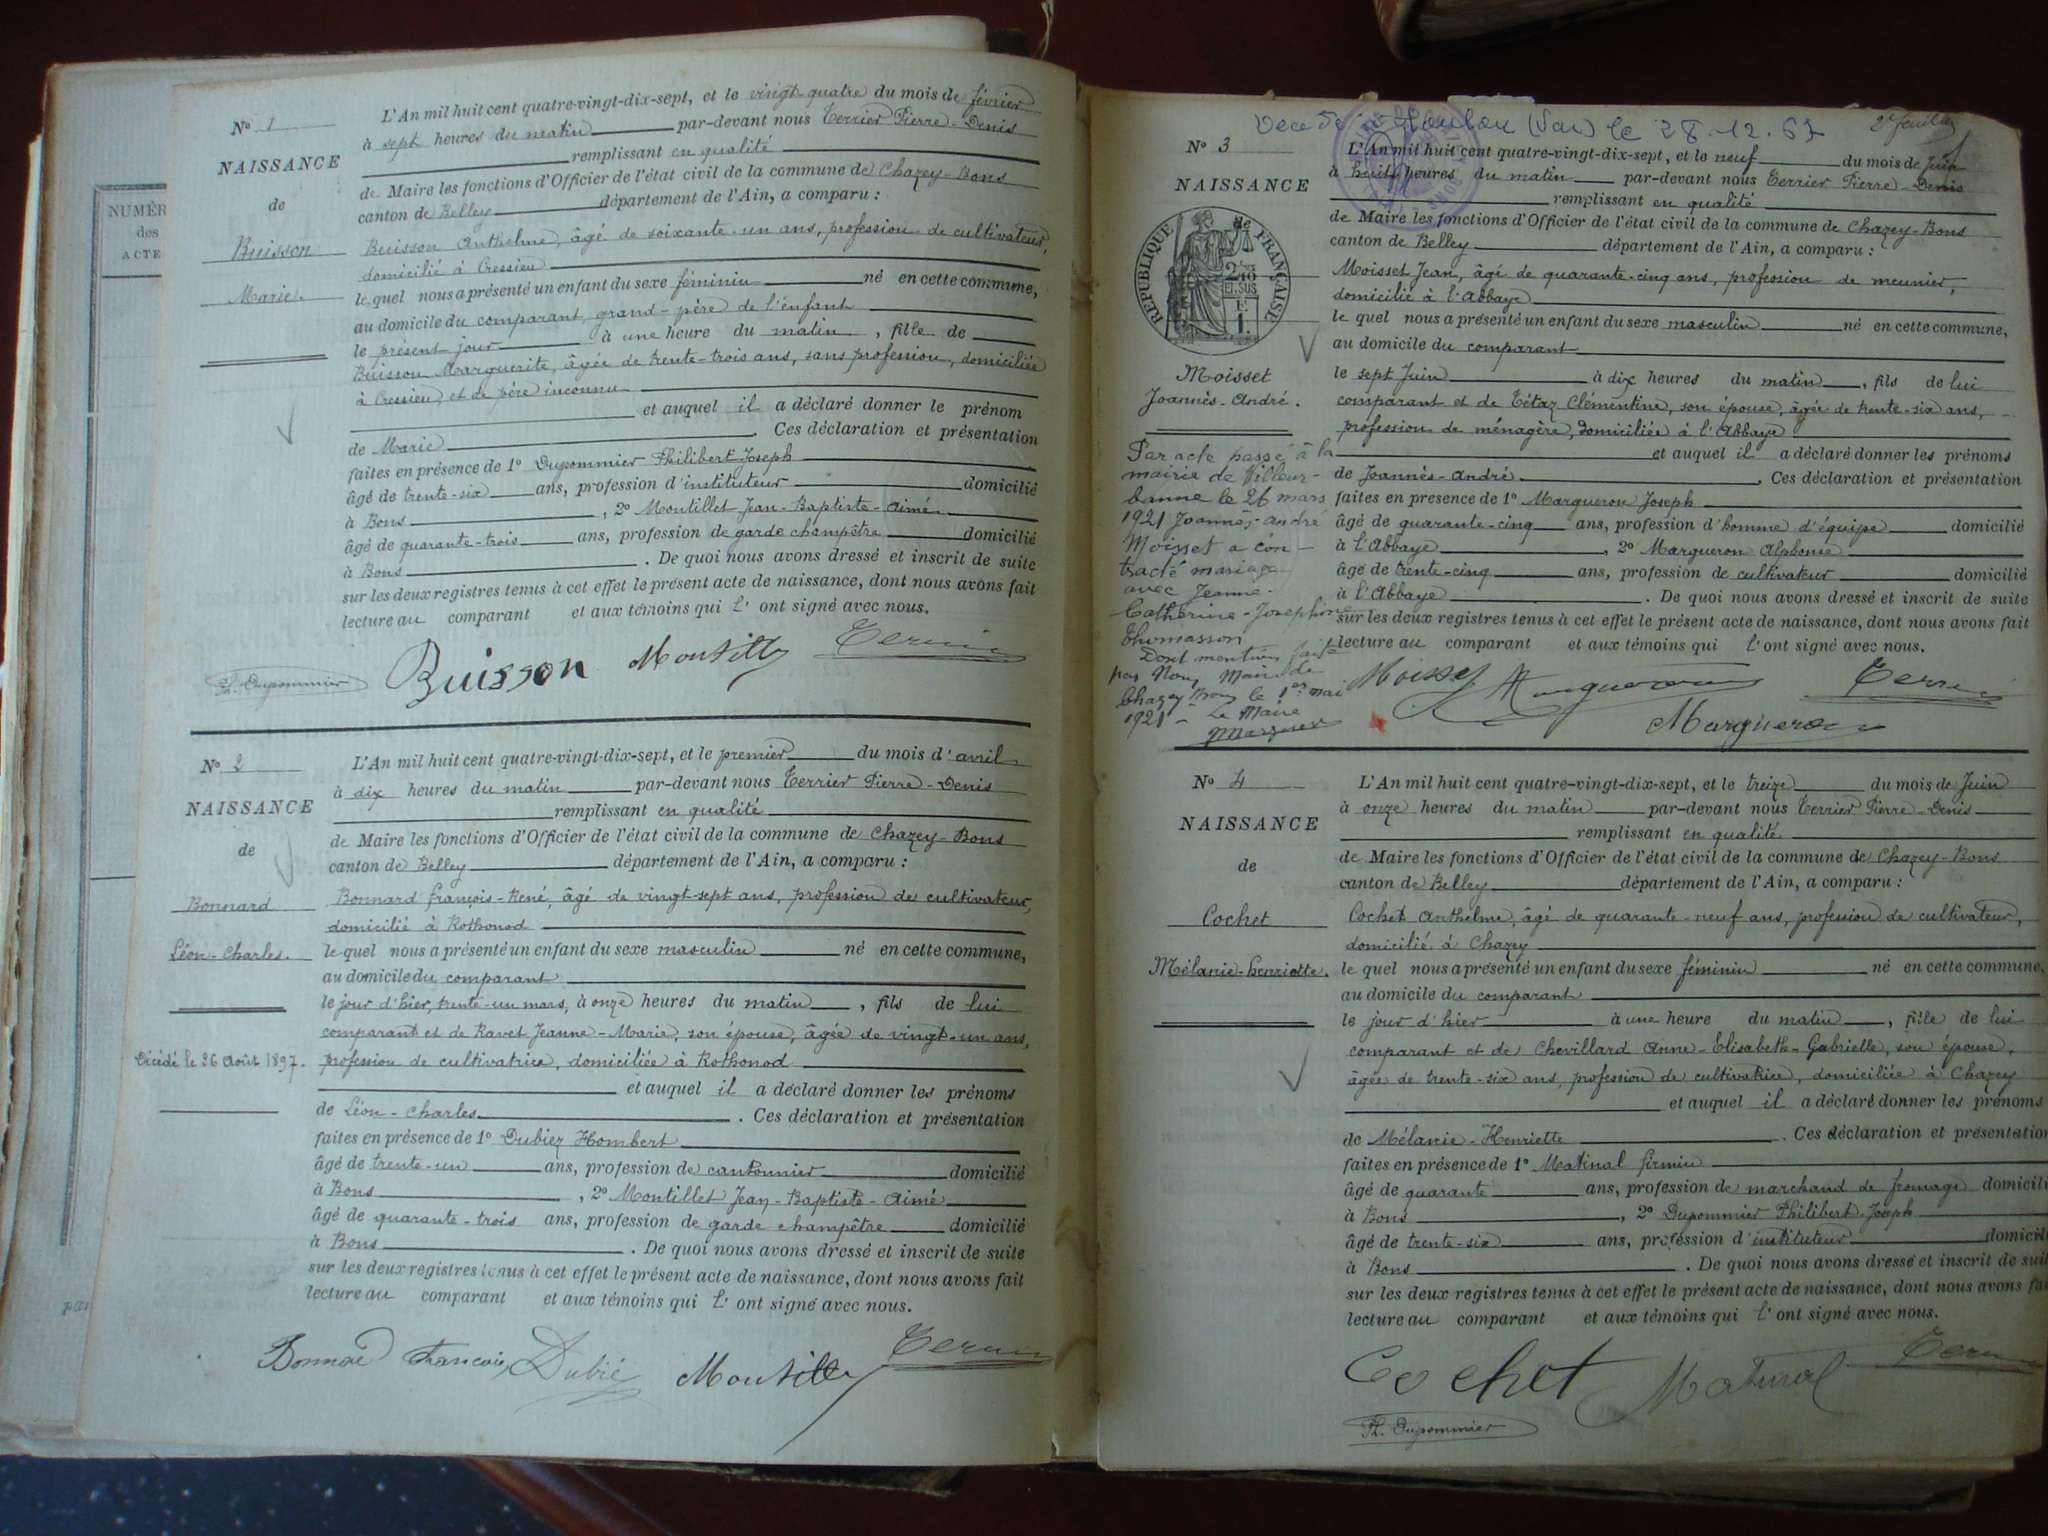 NUMÉR
des
ACTE
par
N° 1
NAISSANCE
de
Buisson
Marie.
L'An mil huit cent quatre-vingt-dix-sept, et le vingt-quatre du mois de février
à sept heures du matin par-devant nous Terrier Pierre-Denis
remplissant en qualité
de Maire les fonctions d'Officier de l'état civil de la commune de Chazey-Bons
canton de Belley département de l'Ain, a comparu :
Buisson Anthelme, âgé de soixante-un ans, profession de cultivateur,
domicilié à Cressieu
le quel nous a présenté un enfant du sexe féminin né en cette commune,
au domicile du comparant, grand-père de l'enfant
le présent jour à une heure du matin, fille de
Buisson Marguerite, âgée de trente-trois ans, sans profession, domiciliée
à Cressieu, et de père inconnu
et auquel il a déclaré donner le prénom
de Marie. Ces déclaration et présentation
faites en présence de 1° Dupommier Philibert-Joseph
âgé de trente-six ans, profession d'instituteur domicilié
à Bons, 2° Montillet Jean-Baptiste-Aimé
âgé de quarante-trois ans, profession de garde champêtre domicilié
à Bons. De quoi nous avons dressé et inscrit de suite
sur les deux registres tenus à cet effet le présent acte de naissance, dont nous avons fait
lecture au comparant et aux témoins qui l'ont signé avec nous.
Ph. Dupommier Buisson Montillet Terrier
N° 2
NAISSANCE
de
Bonnard
Léon-Charles.
Décédé le 26 août 1897.
L'An mil huit cent quatre-vingt-dix-sept, et le premier du mois d'avril
à dix heures du matin par-devant nous Terrier Pierre-Denis
remplissant en qualité
de Maire les fonctions d'Officier de l'état civil de la commune de Chazey-Bons
canton de Belley département de l'Ain, a comparu :
Bonnard François-René, âgé de vingt-sept ans, profession de cultivateur,
domicilié à Rothonod
le quel nous a présenté un enfant du sexe masculin né en cette commune,
au domicile du comparant
le jour d'hier, trente-un mars, à onze heures du matin, fils de lui
comparant et de Ravet Jeanne-Marie, son épouse, âgée de vingt-un ans,
profession de cultivatrice, domiciliée à Rothonod
et auquel il a déclaré donner les prénoms
de Léon-Charles. Ces déclaration et présentation
faites en présence de 1° Dubiez Hombert
âgé de trente-un ans, profession de cantonnier domicilié
à Bons, 2° Montillet Jean-Baptiste-Aimé
âgé de quarante-trois ans, profession de garde champêtre domicilié
à Bons. De quoi nous avons dressé et inscrit de suite
sur les deux registres tenus à cet effet le présent acte de naissance, dont nous avons fait
lecture au comparant et aux témoins qui l'ont signé avec nous.
Bonnard François Dubié Montillet Terrier
Toulon (Var) le 28.12.67
2e feuillet
N° 3
NAISSANCE
de
RÉPUBLIQUE FRANÇAISE
2/10 EN SUS
1 F.
Moisset
Joannès-André.
Par acte passé à la
mairie de Villeur-
banne le 26 mars
1921 Joannès-André
Moisset a con-
tracté mariage
avec Jeanne-
Catherine-Joséphine
Thomasson
Dont mention faite
par Nous Maire de
Chazey Bons le 1er mai
1921 - Le Maire
L'An mil huit cent quatre-vingt-dix-sept, et le neuf du mois de Juin
à huit heures du matin par-devant nous Terrier Pierre-Denis
remplissant en qualité
de Maire les fonctions d'Officier de l'état civil de la commune de Chazey-Bons
canton de Belley département de l'Ain, a comparu :
Moisset Jean, âgé de quarante-cinq ans, profession de meunier,
domicilié à l'Abbaye
le quel nous a présenté un enfant du sexe masculin né en cette commune,
au domicile du comparant
le sept Juin à dix heures du matin, fils de lui
comparant et de Tétaz Clémentine, son épouse, âgée de trente-six ans,
profession de ménagère, domiciliée à l'Abbaye
et auquel il a déclaré donner les prénoms
de Joannès-André. Ces déclaration et présentation
faites en presence de 1° Margueron Joseph
âgé de quarante-cinq ans, profession d'homme d'équipe domicilié
à l'Abbaye, 2° Margueron Alphonse
âgé de trente-cinq ans, profession de cultivateur domicilié
à l'Abbaye. De quoi nous avons dressé et inscrit de suite
sur les deux registres tenus à cet effet le présent acte de naissance, dont nous avons fait
lecture au comparant et aux témoins qui l'ont signé avec nous.
Moisset Margueron Terrier
Margueron
N° 4
NAISSANCE
de
Cochet
Mélanie-henriette.
L'An mil huit cent quatre-vingt-dix-sept, et le treize du mois de Juin
à onze heures du matin par-devant nous Terrier Pierre-Denis
remplissant en qualité
de Maire les fonctions d'Officier de l'état civil de la commune de Chazey-Bons
canton de Belley département de l'Ain, a comparu :
Cochet Anthelme, âgé de quarante-neuf ans, profession de cultivateur,
domicilié à Chazey
le quel nous a présenté un enfant du sexe féminin né en cette commune,
au domicile du comparant
le jour d'hier à une heure du matin, fille de lui
comparant et de Chevillard Anne-Elisabeth-Gabrielle, son épouse,
âgée de trente-six ans, profession de cultivatrice, domiciliée à Chazey
et auquel il a déclaré donner les prénoms
de Mélanie-Henriette. Ces déclaration et présentation
faites en présence de 1° Matinal firmin
âgé de quarante ans, profession de marchand de fromage domicili
à Bons, 2° Dupommier Philibert-Joseph
âgé de trente-six ans, profession d'instituteur domicili
à Bons. De quoi nous avons dressé et inscrit de suit
sur les deux registres tenus à cet effet le présent acte de naissance, dont nous avons fai
lecture au comparant et aux témoins qui l'ont signé avec nous.
Cochet Matinal Terrier
Ph. Dupommier